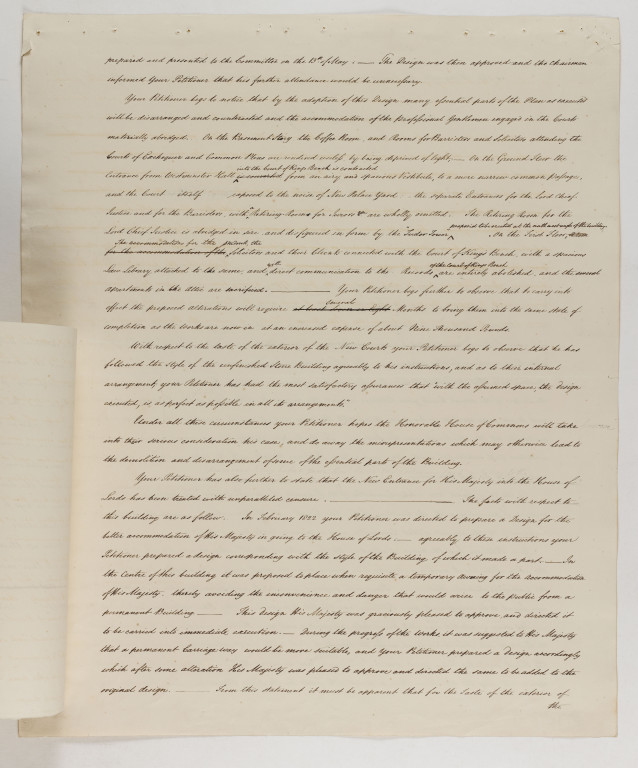 prepared and presented to the Committee on the 13th of May: — The Design was then approved and the Chairman
informed Your Petitioner that his further attendance would be unnecessary.
Your Petitioner begs to notice that by the adoption of this Design many essential parts of the Plan as executed
will be disarranged and counteracted and the accommodation of the Professional Gentlemen engag'd in the Courts
materially abridged. On the Basement Story the Coffee Room and Rooms for Barristers and Solicitors attending the
Courts of Exchequer and Common Pleas are rendered useless by being deprived of light. — On the Ground Floor the
into the Court of Kings Bench is contracted
Entrance from Westminster Hall is converted from an airy and spacious Vestibule, to a mere narrow common passage,
and the Court itself exposed to the noise of New Palace Yard the separate Entrances for the Lord Chief
Justice and for the Barristers, with Retiring Rooms for Jurors &c are wholly omitted. The Retiring Room for the
proposed to be erected at the north west angle of the building
Lord Chief Justice is abridged in size and disfigured in form by the Tudor Tower, On the First Floor,
The accommodation for the
for the accommodation of the Solicitors and their Clients connected with the Court of Kings Bench, with a spacious
with of the Court of Kings Bench
Law Library attached to the same and direct communication to the Records are entirely abolished, and the
apartments in the attic are sacrificed. — Your Petitioner begs further to observe that to carry into
Several
effect the proposed alterations will require at least seven or eight Months to bring them into the same state of
completion as the Works are now in at an increased expense of about Nine Thousand Pounds.
With respect to the taste of the exterior of the New Courts your Petitioner begs to observe that he has
followed the style of the unfinished Stone Building agreeably to his instructions, and as to their internal
arrangement your Petitioner has had the most satisfactory assurances that "with the assumed space, the design
executed, is as perfect as possible in all its arrangements."
Under all these circumstances your Petitioner hopes the Honorable House of Commons will take
into their serious consideration his case, and do away the misrepresentations which may otherwise lead to
the demolition and disarrangement of some of the essential parts of the Building.
Your Petitioner has also further to state that the New Entrance for His Majesty into the House of
Lords has been treated with unparalleled censure: — The facts with respect to
this building are as follow. In February 1822 your Petitioner was directed to prepare a Design for the
better accommodation of His Majesty in going to the House of Lords — agreeably to these instructions your
Petitioner prepared a design corresponding with the style of the Building of which it made a part. — In
the centre of this building it was proposed to place when requisite, a temporary Awning for the accommodation
of His Majesty thereby avoiding the inconvenience and danger that would arise to the Public from a
permanent Building — This design His Majesty was graciously pleased to approve and directed it
to be carried into immediate execution. — During the progress of the works it was suggested to His Majesty
that a permanent Carriage way would be more suitable, and Your Petitioner prepared a Design accordingly
which after some alteration His Majesty was pleased to approve and directed the same to be added to the
original design — From this statement it must be apparent that for the taste of the exterior of
the